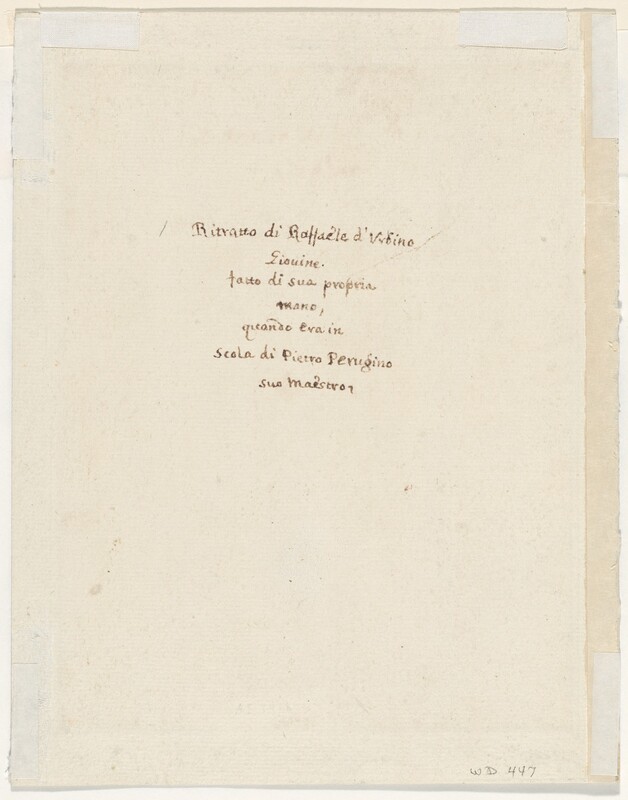 / Ritratto di Raffaële d'Vrbino
Giouine.
fatto di sua propria
mano,
quando era in
scola di Pietro Perugino
suo maëstro,
WD 447